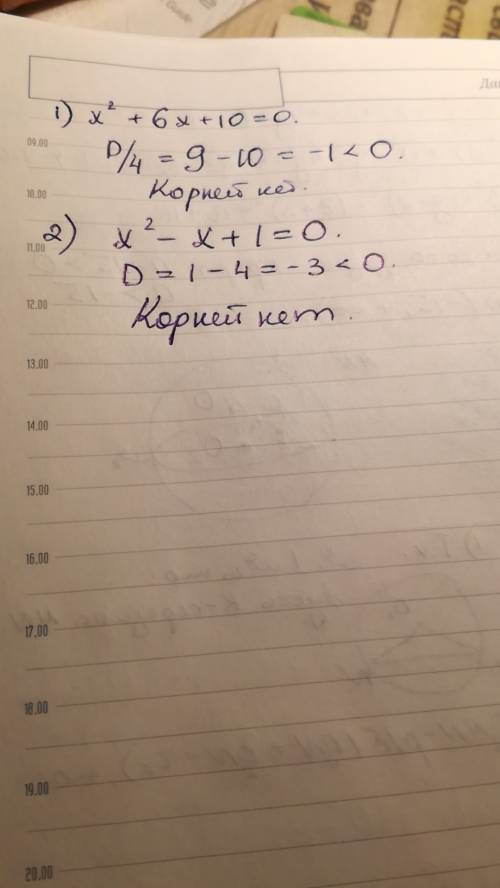 Guide
1) x² + 6x + 10 = 0.
09.00
D/4 = 9 - 10 = -1 < 0.
10.00
Корней нет.
2) x² - x + 1 = 0.
11.00
D = 1 - 4 = -3 < 0.
12.00
Корней нет.
13.00
14.00
15.00
16.00
17.00
18.00
19.00
20.00